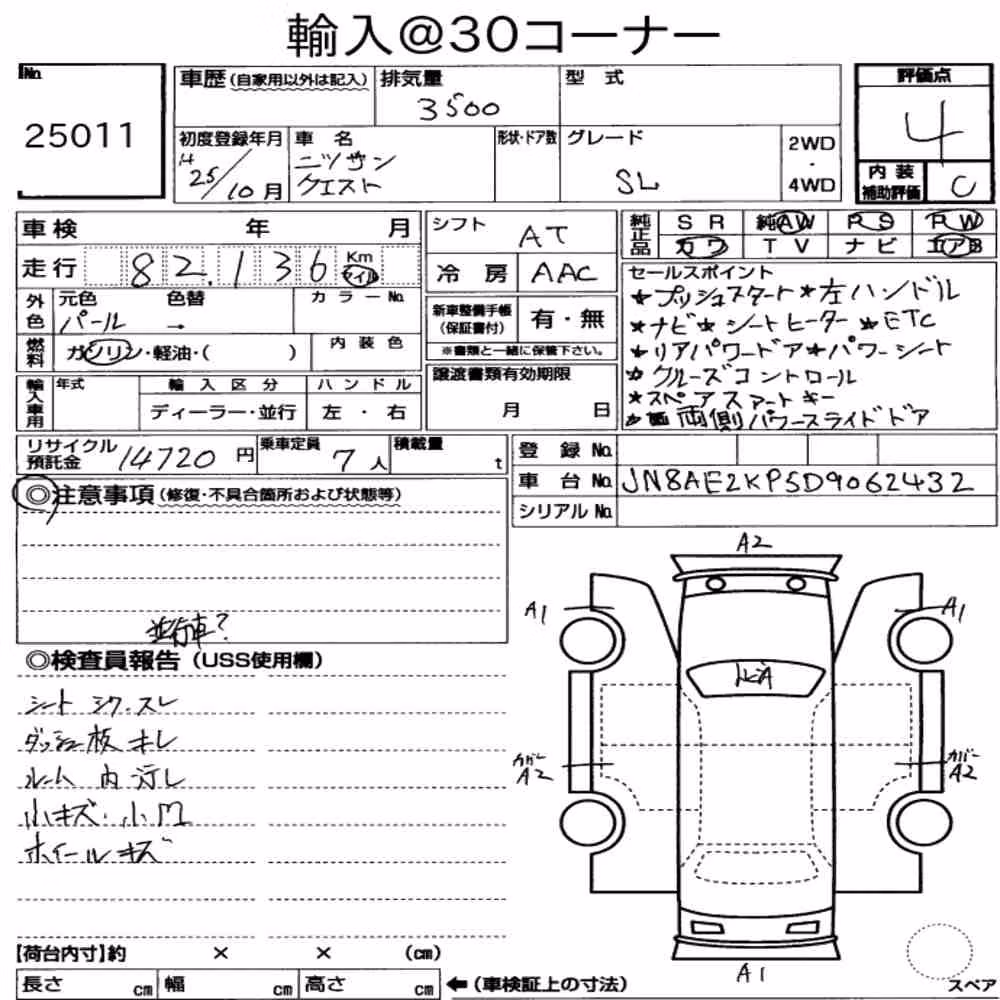 輸入@30コーナー
No.
25011
車歴 (自家用以外は記入)
排気量
3500
型 式
評価点
4
初度登録年月
H
25/10月
車 名
ニッサン
クエスト
形状・ドア数
グレード
SL
2WD
・
4WD
内 装
補助評価
C
車検 年 月
走行 82,136 Km マイル
外色
元色 色替 カラーNo.
パール →
燃料
ガソリン・軽油・( )
内 装 色
輸入車用
年式
輸 入 区 分
ディーラー・並行
ハ ン ド ル
左 ・ 右
シフト AT
冷 房 AAC
新車整備手帳
(保証書付)
有・無
※書類と一緒に保管下さい。
譲渡書類有効期限
月 日
純正品
SR 純AW PS PW
カワ TV ナビ エアB
セールスポイント
★プッシュスタート★左ハンドル
★ナビ★シートヒーター★ETC
★リアパワードア★パワーシート
★クルーズコントロール
★スペアスマートキー
★両側パワースライドドア
リサイクル
預託金
14720円
乗車定員
7人
積載量
t
登 録 No.
車 台 No. JN8AE2KP5D9062432
シリアル No.
◎注意事項 (修復・不具合箇所および状態等)
並行車?
◎検査員報告 (USS使用欄)
シート シワ・スレ
ダッシュ板 キレ
ルーム 内 汚レ
小キズ・小凹
ホイールキズ
A2
A1
A1
カバー
A2
カバー
A2
A1
スペア
【荷台内寸】約 × × (cm)
長さ cm 幅 cm 高さ cm
←(車検証上の寸法)